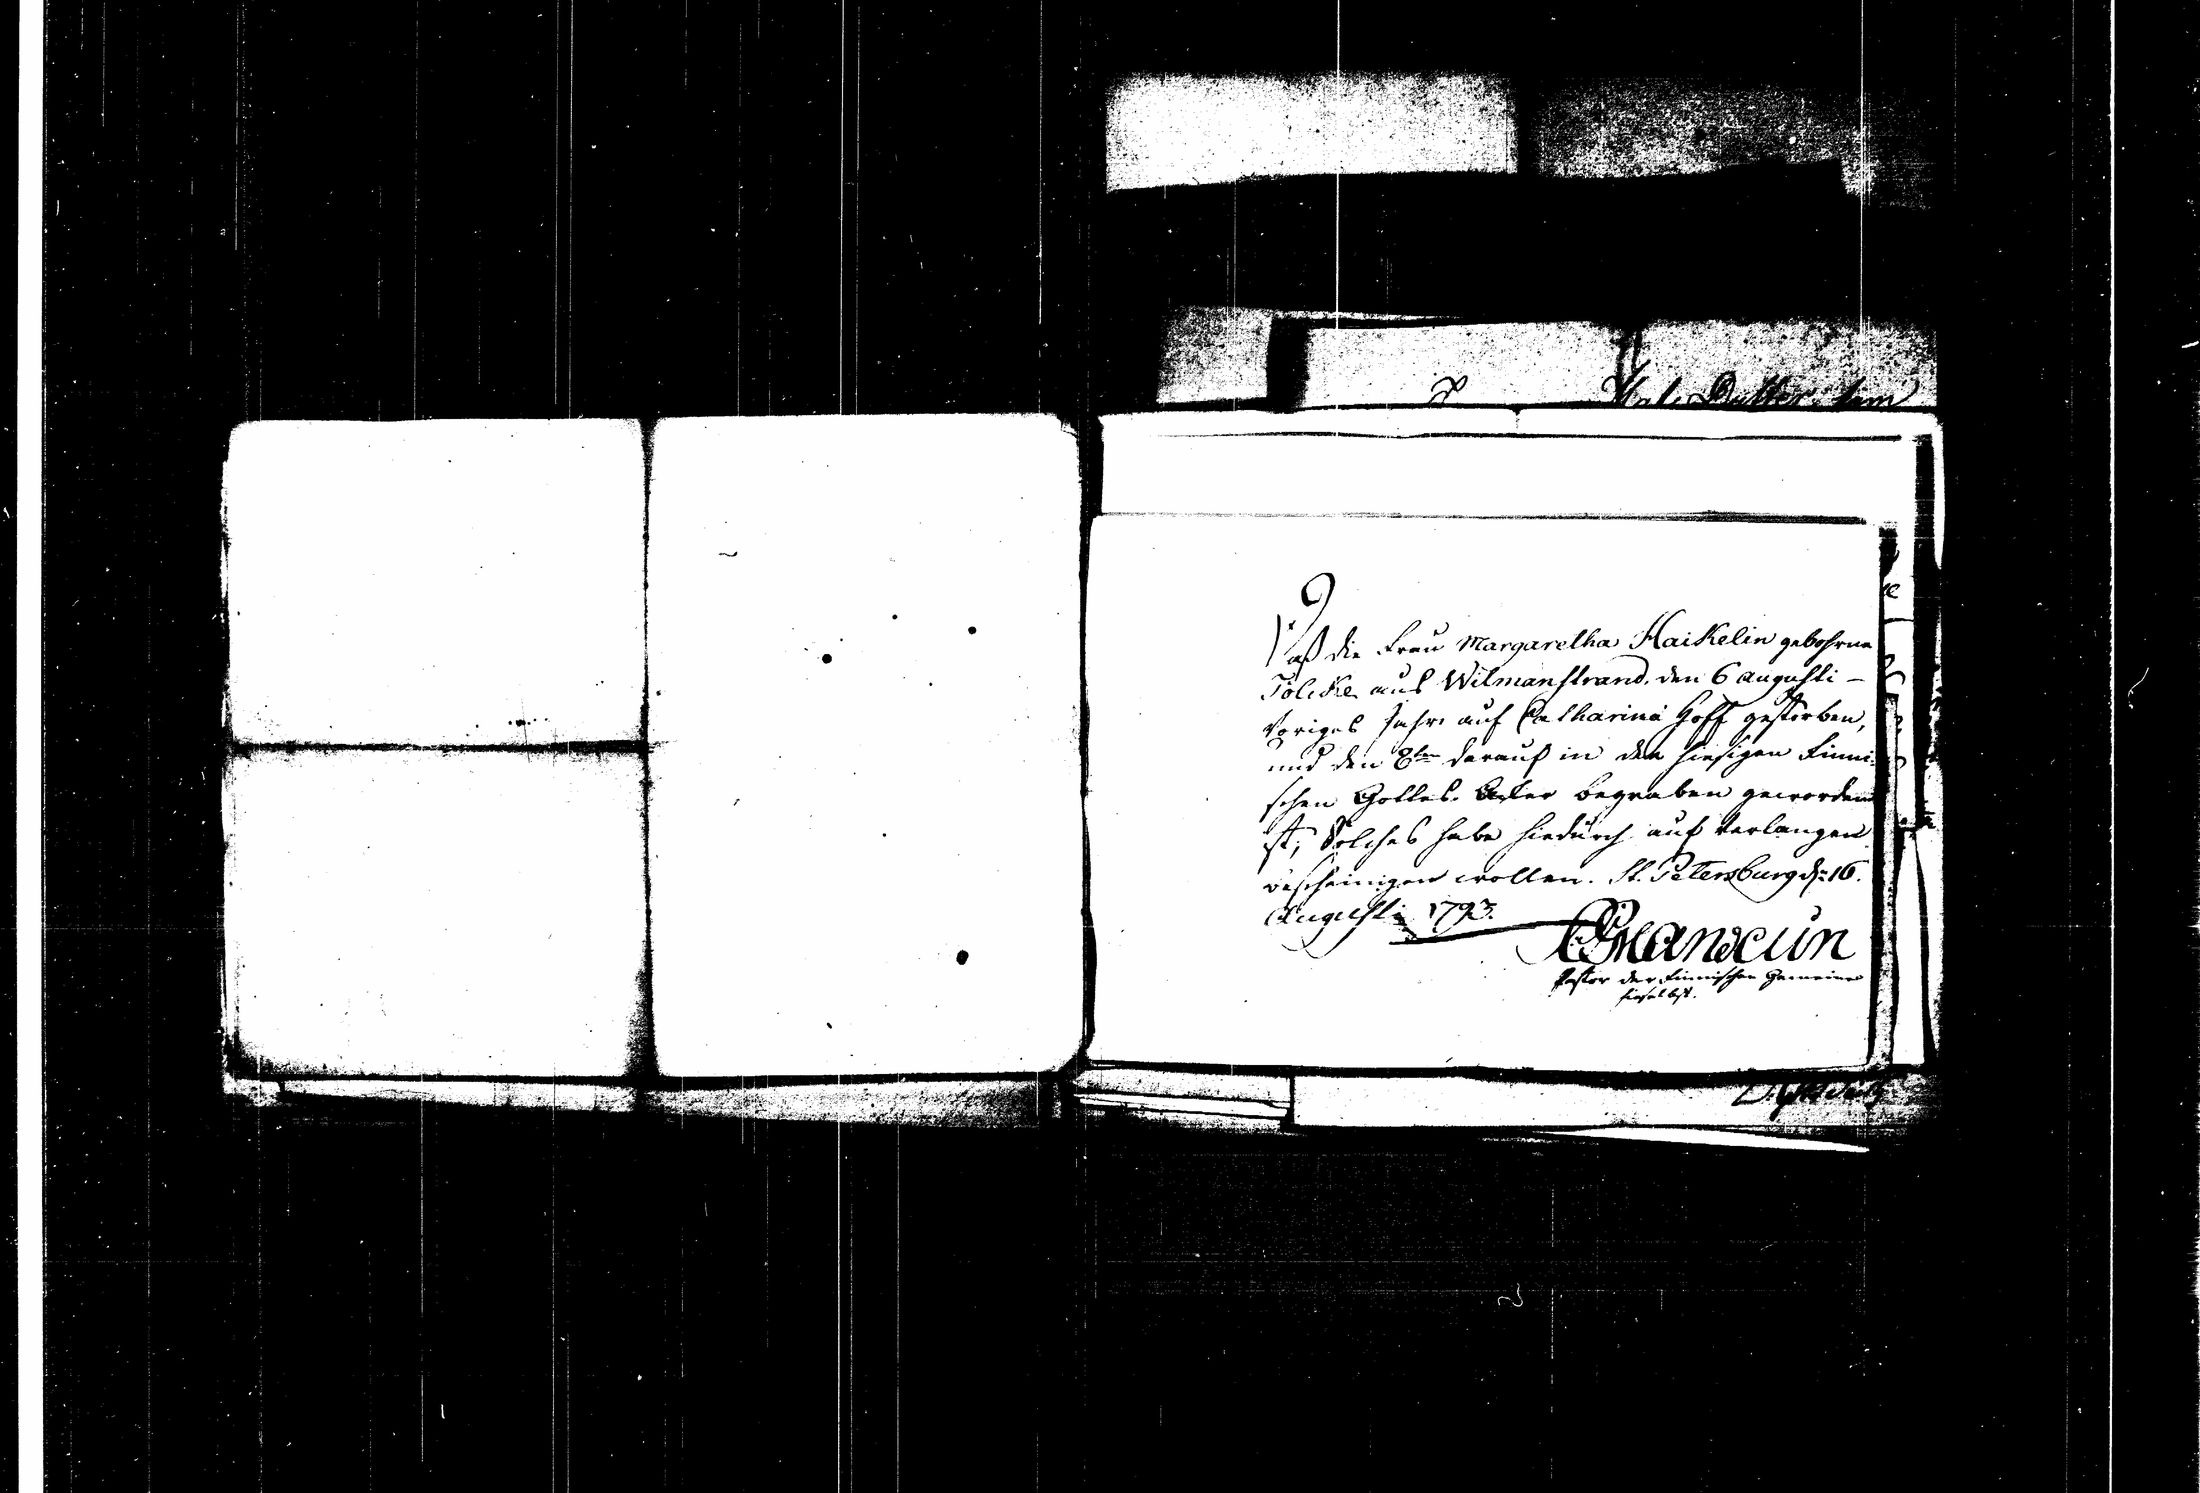 Daß die Frau Margaretha Haikelin gebohrne
Tölcke aus Wilmanstrand, den 6 augusti -
Voriges Jahr auf Catharina Hoff gestorben,
und den 8ten darauf in den hiesigen Finni-
schen Gottes-Acker begraben geworden
ist; Solches habe hiedurch auf Verlangen
bescheinigen wollen. St. Petersburg d: 16.
Augusti 1793.
Pastor der Finnischen Gemeine
hieselbst.